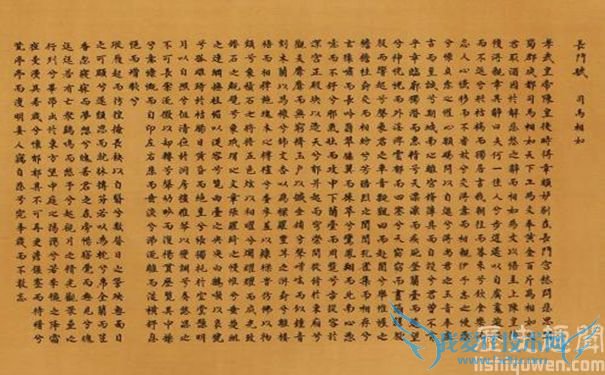 長門賦 司馬相如
孝武皇帝陳皇后時得幸頗妒別在長門宮愁悶悲思聞
蜀郡成都司馬相如天下工為文奉黃金百斤為相如文
君取酒因于解悲愁之辭而相如為文以悟主上陳皇后
復得親幸其辭曰夫何一佳人兮步逍遙以自虞魂踰佚
而不反兮形枯槁而獨居言我朝往而暮來兮飲食樂而
忘人心慊移而不省故兮交得意而相親伊予志之慢愚
兮懷貞愨之懽心願賜問而自進兮得尚君之玉音奉虛
言而望誠兮期城南之離宮脩薄具而自設兮君曾不肯
乎幸臨廓獨潛而專精兮天漂漂而疾風登蘭臺而遙望
兮神怳怳而外淫浮雲鬱而四塞兮天窈窈而晝陰雷殷
殷而響起兮聲象君之車音飄風迴而起閨兮舉帷幄之
襜襜桂樹交而相紛兮芳酷烈之誾誾孔雀集而相存兮
玄猿嘯而長吟翡翠脅翼而來萃兮鸞鳳翔而北南心憑
噫而不舒兮邪氣壯而攻中下蘭臺而周覽兮步從容於
深宮正殿塊以造天兮鬱並起而穹崇間徙倚於東廂兮
觀夫靡靡而無窮擠玉戶以撼金鋪兮聲噌吰而似鐘音
刻木蘭以為榱兮飾文杏以為梁羅丰茸之遊樹兮離樓
梧而相撐施瑰木之欂櫨兮委參差以槺梁時仿佛以物
類兮象積石之將將五色炫以相曜兮爛耀耀而成光緻
錯石之瓴甓兮象瑇瑁之文章張羅綺之幔帷兮垂楚組
之連綱撫柱楣以從容兮覽曲臺之央央白鶴噭以哀號
兮孤雌跱於枯楊日黃昏而望絕兮悵獨託於空堂懸明
月以自照兮徂清夜於洞房援雅琴以變調兮奏愁思之
不可長案流徵以卻轉兮聲幼眇而復揚貫歷覽其中操
兮意慷慨而自卬左右悲而垂淚兮涕流離而從橫舒息
悒而增欷兮
蹝履起而彷徨揄長袂以自翳兮數昔日之諐殃無面目
之可顯兮遂頹思而就床摶芬若以為枕兮席荃蘭而茝
香忽寢寐而夢想兮魄若君之在旁惕寤覺而無見兮魂
迋迋若有亡眾雞鳴而愁予兮起視月之精光觀眾星之
行列兮畢昴出於東方望中庭之藹藹兮若季秋之降霜
夜曼曼其若歲兮懷鬱鬱其不可再更澹偃蹇而待曙兮
荒亭亭而復明妾人竊自悲兮究年歲而不敢忘
lishiquwen.com